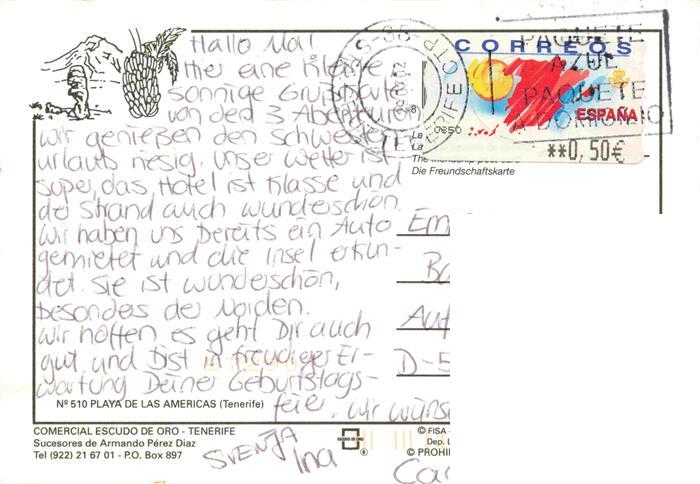 Hallo Ma!
Hier eine kleine
sonnige Grußkarte
von den 3 Abenteurern
wir genießen den Schwestern
urlaub riesig, unser Wetter ist
super, das Hotel ist Klasse und
der Strand auch wunderschön.
Wir haben uns bereits ein Auto
gemietet und die Insel erkun-
det. Sie ist wunderschön,
besonders der Norden.
Wir hoffen es geht Dir auch
gut und bist in freudiger Er-
wartung Deiner Geburtstags-
feier. Wir wünsc
SVENJA
Ina
Ca
CORREOS
ESPAÑA
0850
**0,50€
PAQUETE
AZUL
PAQUETE
A DOMICILIO
La
La
The
Die Freundschaftskarte
Em
Ba
Auf
D-5
Nº 510 PLAYA DE LAS AMERICAS (Tenerife)
COMERCIAL ESCUDO DE ORO - TENERIFE
Sucesores de Armando Pérez Diaz
Tel (922) 21 67 01 - P.O. Box 897
ESCUDO DE ORO
®
© FISA
Dep. L
© PROHIB